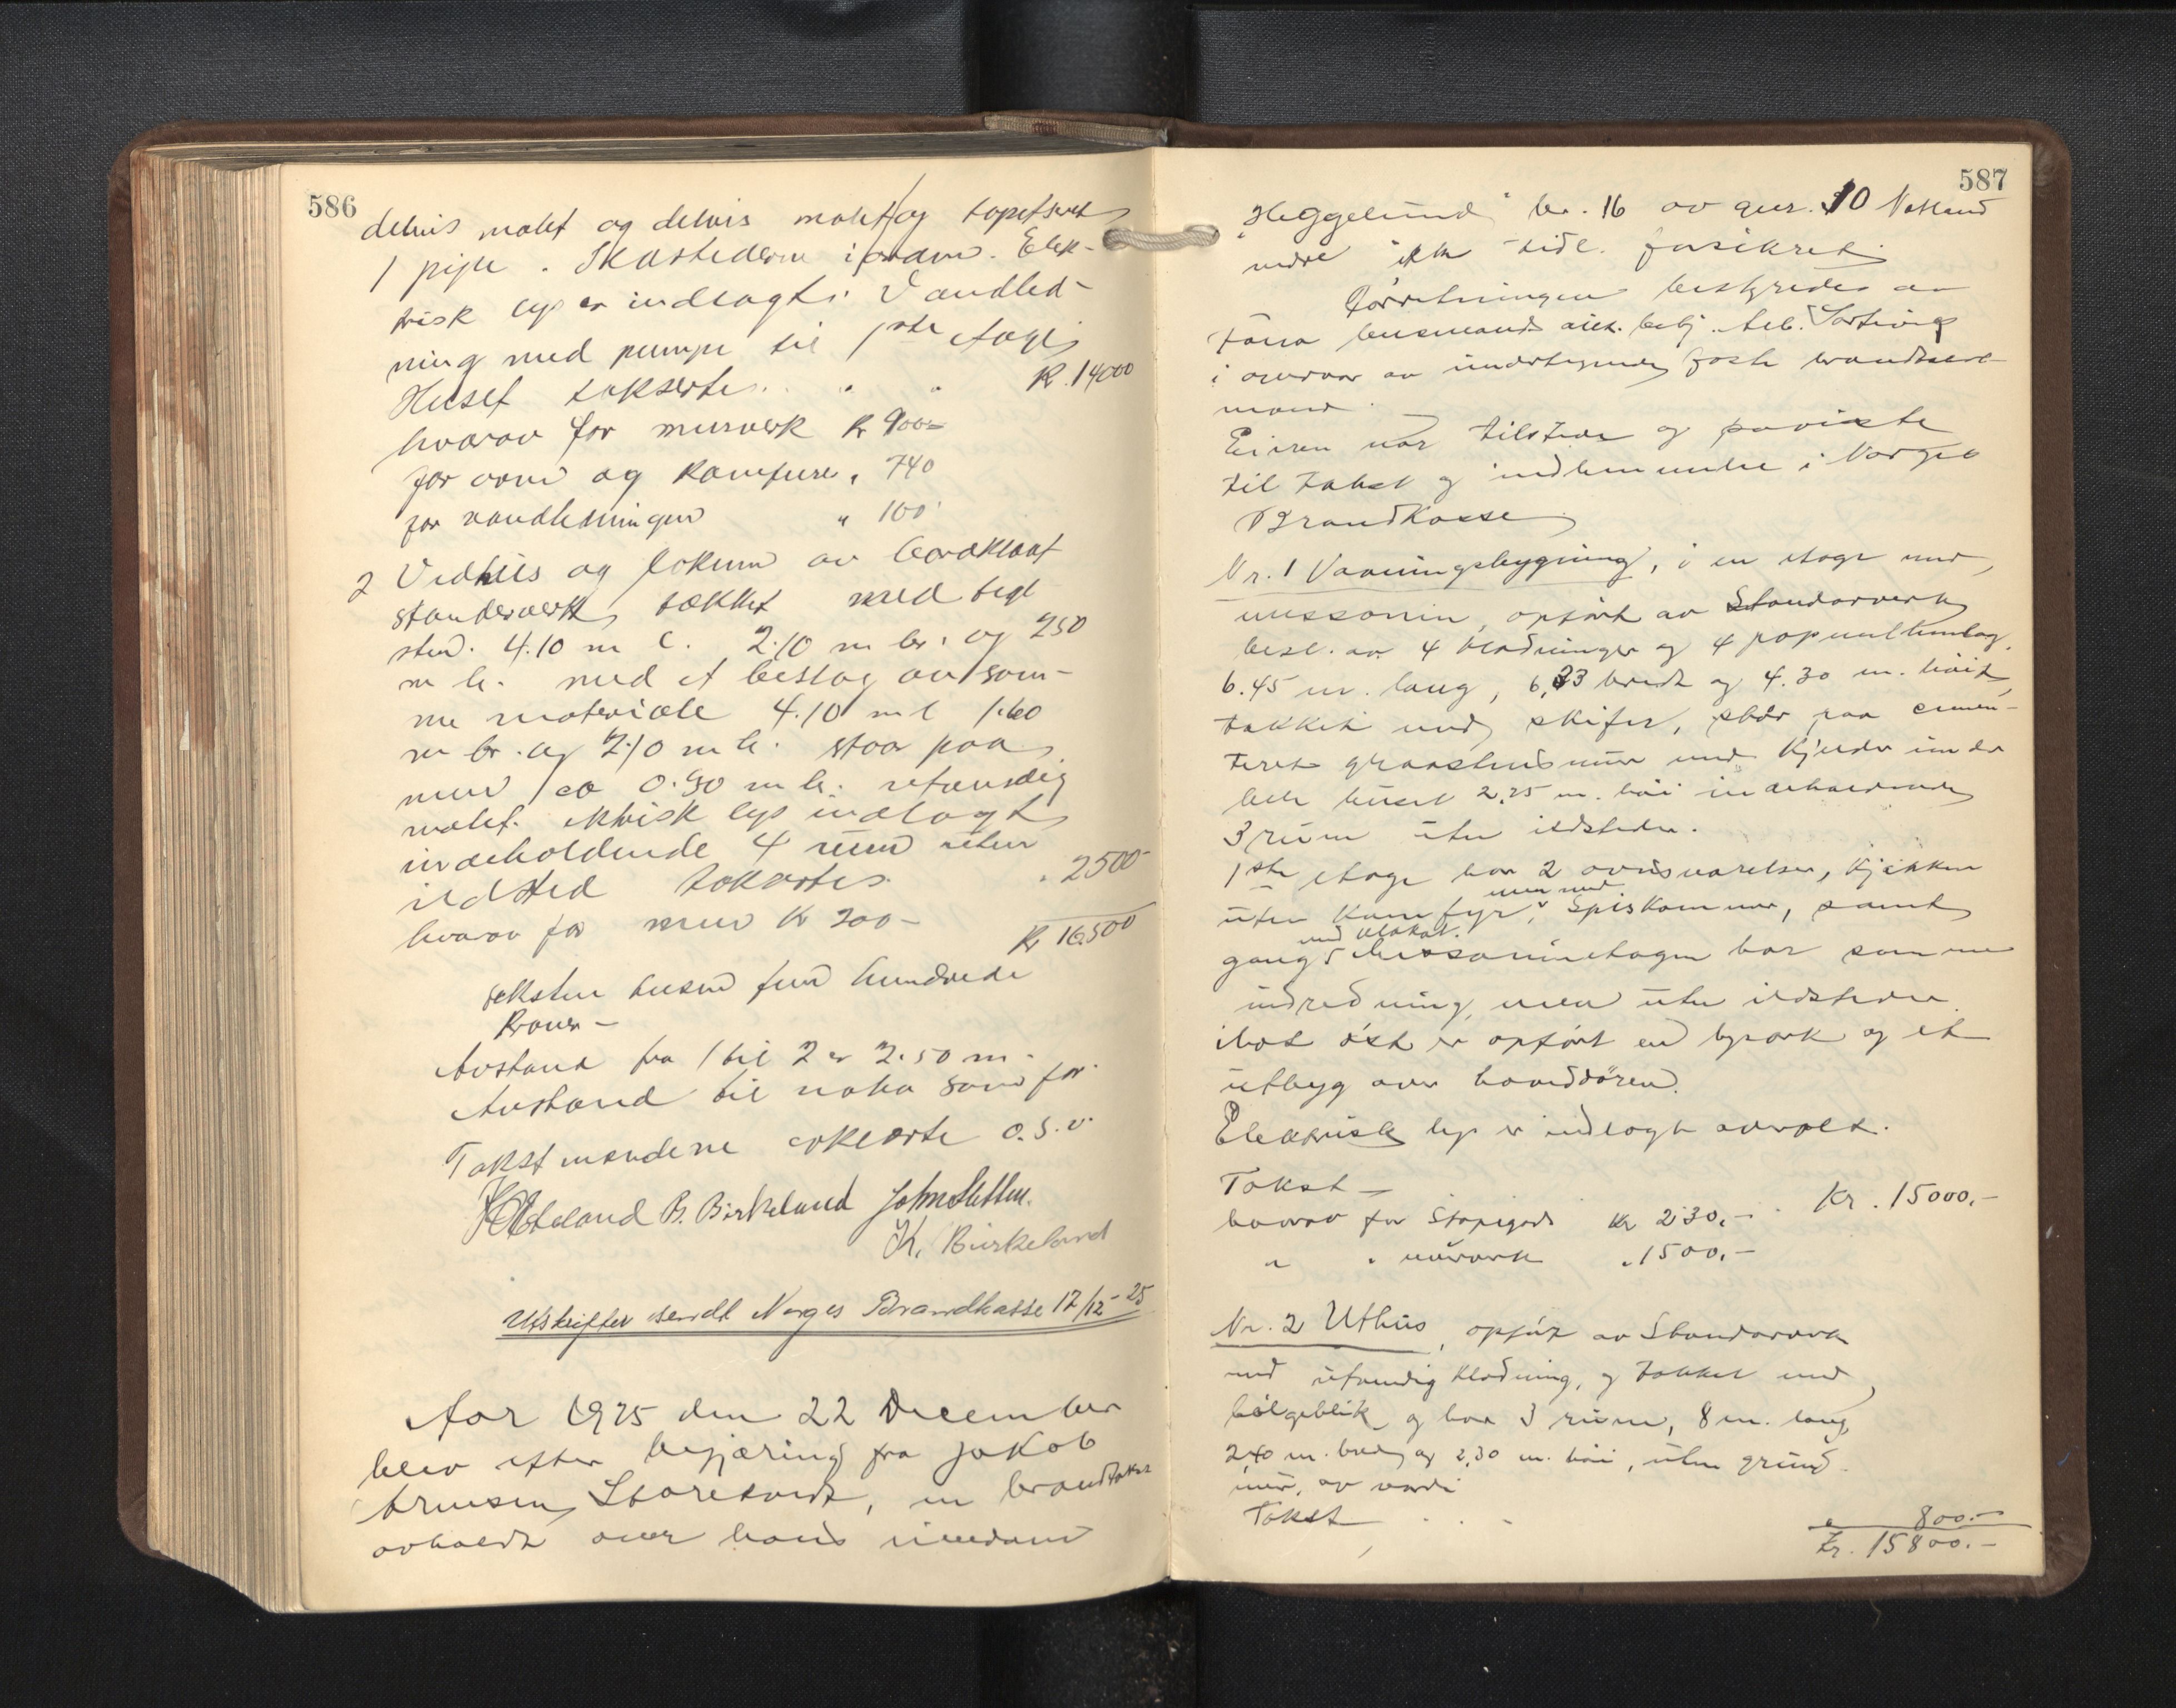 586
delvis malet og delvis malet og tapetseret
1 pipe. Ildstederne i orden. Elek-
trisk lys er indlagt. Vandled-
ning med pumpe til 1ste etage
Huset takserte. " " Kr. 14000
hvorav for murverk Kr 900-
for ovne og komfure " 740
for vandledningen " 100
2 Vedhus og lokum av bordklædt
standerverk, tækket med tegl
sten. 4.10 m l. 2.10 m br. og 250
m h. med et beslag av sam-
me materiale 4.10 m l 1.60
m br. og 2.10 m h. staar paa
mur ca 0.90 m h. utvendig
malet. elektrisk lys indlagt
indeholdende 4 rum uten
ildsted takseres. " 2500-
hvorav for mur Kr 200-
Kr 16500
seksten tusen fem hundrede
Kroner -
Avstand fra 1 til 2 er 2.50 m.
Avstand til nabo som før.
Takstmændene erklærte o.s.v.
B. Birkeland John Sletten.
K. Birkeland
Utskrifter sendt Norges Brandkasse 17/12-25
Aar 1925 den 22 December
blev efter begjæring fra Jakob
Storetvedt, en brandtakst
avholdt over hans eiendom
587
"Heggelund" br. 16 av gnr. 10 Natland
ikke tidl. forsikret.
Forretningen bestyredes av
Fana lensmands aut. betj.
i overvær av undertegnede faste brandskjøns-
mænd.
Eieren var tilstede og paaviste
til takst og indlemmelse i Norges
Brandkasse
Nr. 1 Vaaningsbygning, i en etage med
messanin, opført av Standerverk
best. av 4 klædninger og 4 papmellemlag,
6.45 m. lang, 6,33 bredt og 4.30 m. høit,
tækket med skifer, staar paa cemen-
teret graastensmur med Kjelder under
hele huset 2,25 m. høi indeholdende
3 rum uten ildsteder.
1ste etage har 2 ovnsværelser, Kjøkken
men med
uten Komfyr, Spiskammer, samt
med klosat.
gang, Messaninetagen har samme
indredning, men uten ildsteder.
Mot øst er opført en byark og et
utbyg over hoveddøren.
Elektrisk lys er indlagt overalt.
Takst - Kr. 15000,-
hvorav for Støpegods Kr 230,-
" " murverk " 1500,-
Nr. 2 Uthus, opført av Standerverk
med utvendig klædning, og tækket med
bølgeblik og har 3 rum, 8 m. lang,
2,40 m. bred og 2,30 m. høi, uten grund-
mur, av værdi
Takst . . . " 800,-
Kr. 15800.-